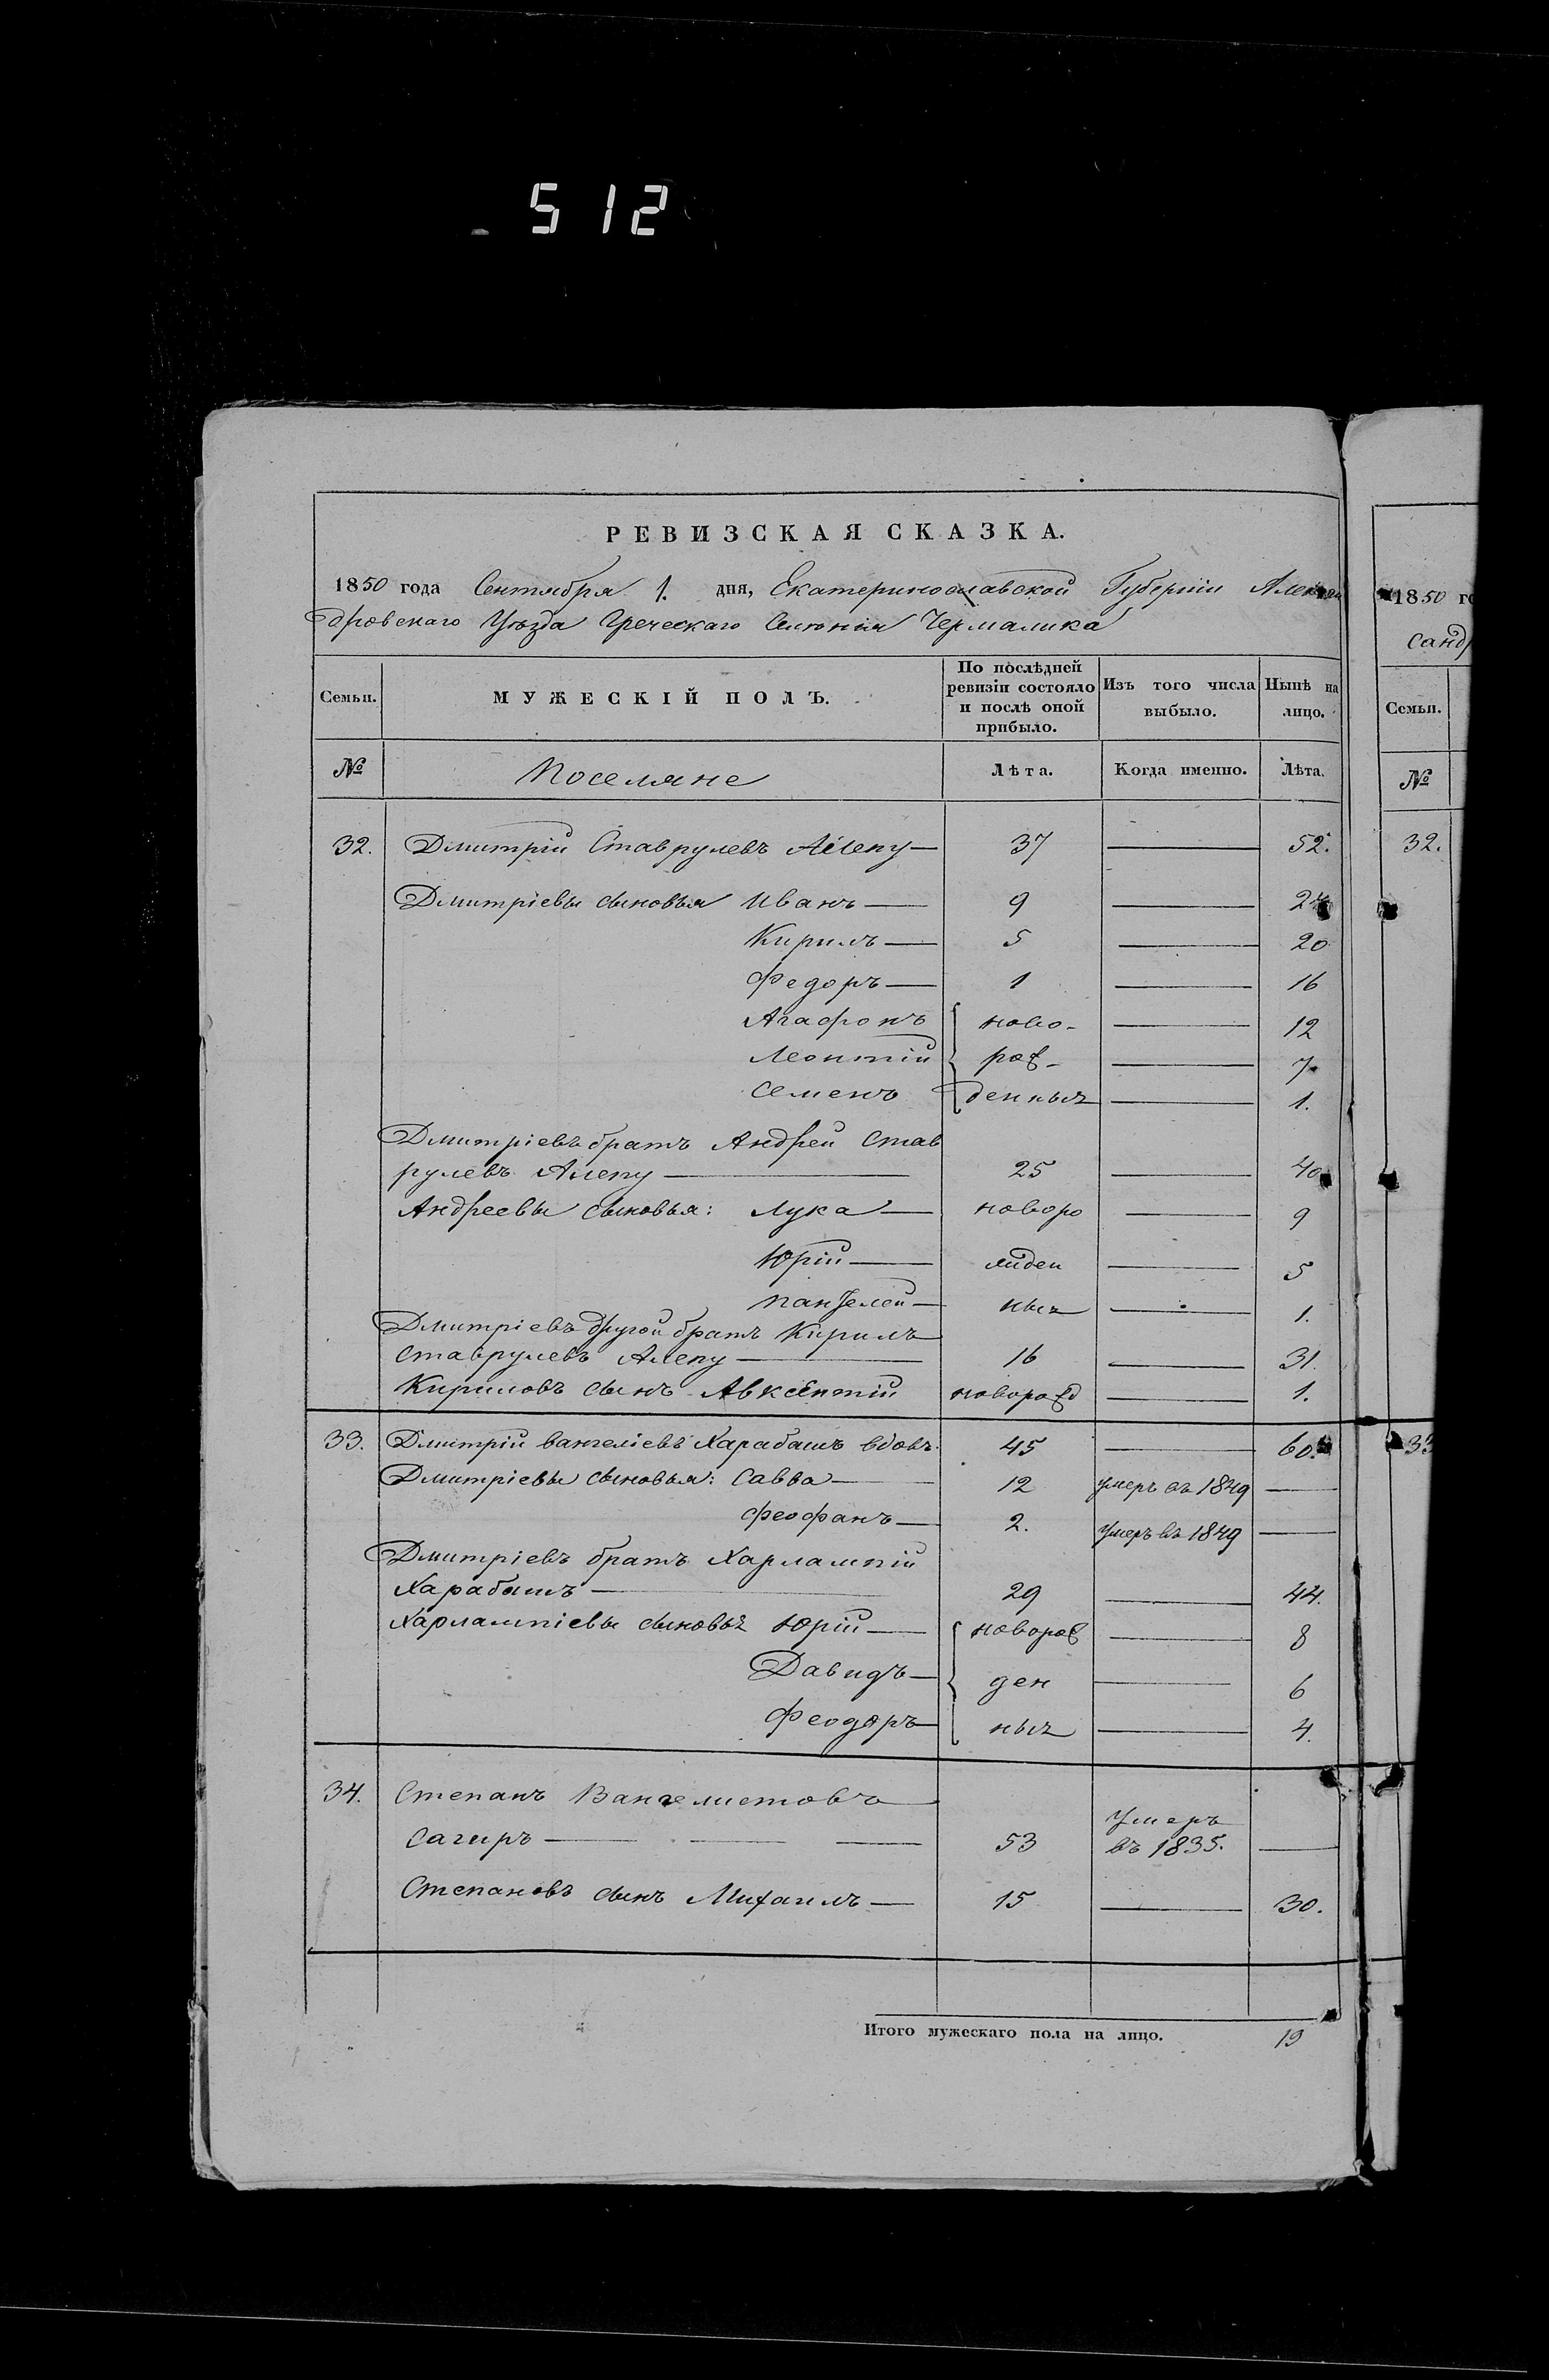 512
РЕВИЗСКАЯ СКАЗКА.
1850 года Сентября 1. дня, Екатеринославской Губерніи Алексан
дровскаго Уѣзда Греческаго Селенія Чермалика
Семьи. МУЖЕСКІЙ ПОЛЪ. По послѣдней ревизіи состояло и послѣ оной прибыло. Изъ того числа выбыло. Нынѣ на лицо.
№ Поселяне Лѣта. Когда именно. Лѣта.
32. Дмитрій Ставрулевъ Алепу 37 52.
Дмитріевы сыновья Иванъ 9 24
Кирилъ 5 20
Федоръ 1 16
Агафонъ ново- 12
Леонтій рож- 7
Семенъ денныхъ 1.
Дмитріевъ братъ Андрей Став
рулевъ Алепу 25 40
Андреевы сыновья: Лука новоро 9
Юрій жден 5
Пантелей ныхъ 1.
Дмитріевъ другой братъ Кирилъ
Ставрулевъ Алепу 16 31.
Кириловъ сынъ Авксентій новорожд 1.
33. Дмитрій Вангеліевъ Харабашъ вдовъ 45 60.
Дмитріевы сыновья: Савва 12 умеръ въ 1849
Феофанъ 2. умеръ въ 1849
Дмитріевъ братъ Харлампій
Харабашъ 29 44.
Харлампіевы сыновья Юрій новорож 8
Давидъ ден 6
Феодоръ ныхъ 4.
34. Степанъ Вангелистовъ
Сагиръ 53 Умеръ въ 1835.
Степановъ сынъ Михаилъ 15 30.
Итого мужескаго пола на лицо. 19
1850 го
санд
Семьи.
№
32.
33